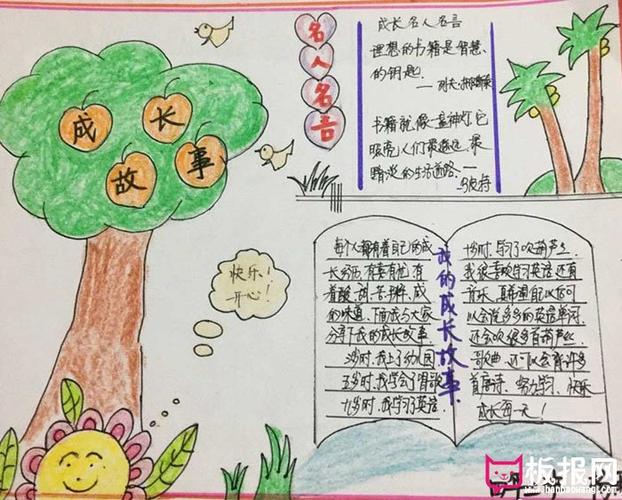 成长
故事
名人名言
成长名人名言
理想的书籍是智慧
的钥匙
书籍就像一盏神灯,它
照亮人们最遥远、最
暗淡的生活道路
快乐!
开心!
我的成长故事
每个人都有着自己的成
长经历,有喜有忧,有
着酸、甜、苦、辣、咸
的味道。下面我与大家
分享下我的成长故事。
3岁时,我上了幼儿园
五岁时,我学会了唱歌
九岁时,我学习了英语
十岁时,学习了吹葫芦丝。
我很喜欢学习英语还有
音乐,真希望自己以后可
以会说多多的英语单词,
还会吹很多首葫芦丝
歌曲,还可以会背许多
首唐诗。努力学习,快乐
成长每一天!
板报网